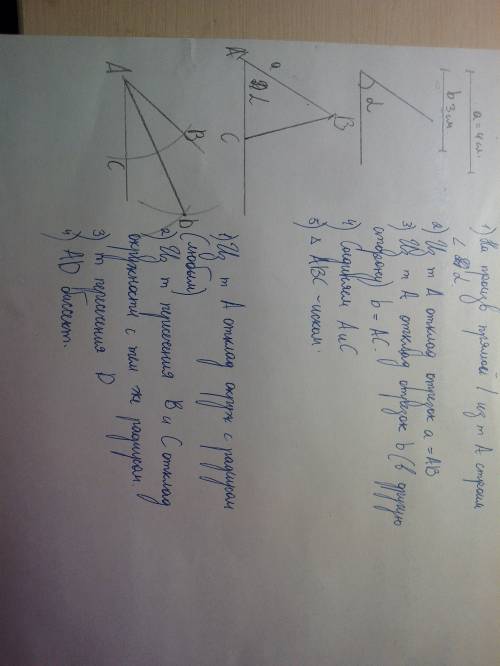 a = 4 см.
b 3 см
α
1) На произв прямой / из т А строим
∠ α
2) Из т А отклад отрезок a = AB
3) Из т А отклад отрезок b (в другую
сторону) b = AC.
4) Соединяем А и С
5) Δ ABC - искам.
A
a
α
B
C
1) Из т А отклад окруж с радиусом
(любым)
2) Из т пересечения B и C отклад
окружности с тем же радиусом.
3) т пересечения D
4) AD биссект.
A
B
C
D